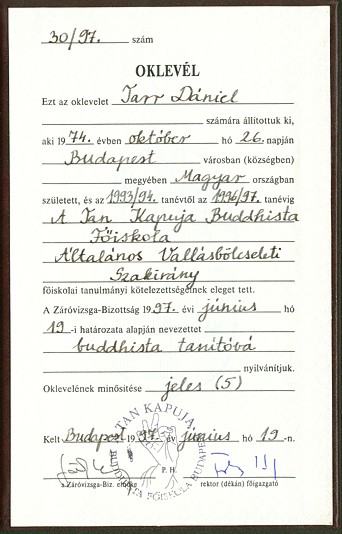 30/97. szám
OKLEVÉL
Ezt az oklevelet Tarr Dániel
számára állítottuk ki,
aki 1974. évben október hó 26. napján
Budapest városban (községben)
megyében Magyar országban
született, és az 1993/94. tanévtől az 1996/97. tanévig
A Tan Kapuja Buddhista
Főiskola
Általános Vallásbölcseleti
Szakirány
főiskolai tanulmányi kötelezettségeinek eleget tett.
A Záróvizsga-Bizottság 1997. évi június hó
19-i határozata alapján nevezettet
buddhista tanítóvá
nyilvánítjuk.
Oklevelének minősítése jeles (5)
TAN KAPUJA
BUDDHISTA FŐISKOLA BUDAPEST
Kelt Budapest 1997. év június hó 19-n.
P. H.
a Záróvizsga-Biz. elnöke
rektor (dékán) főigazgató